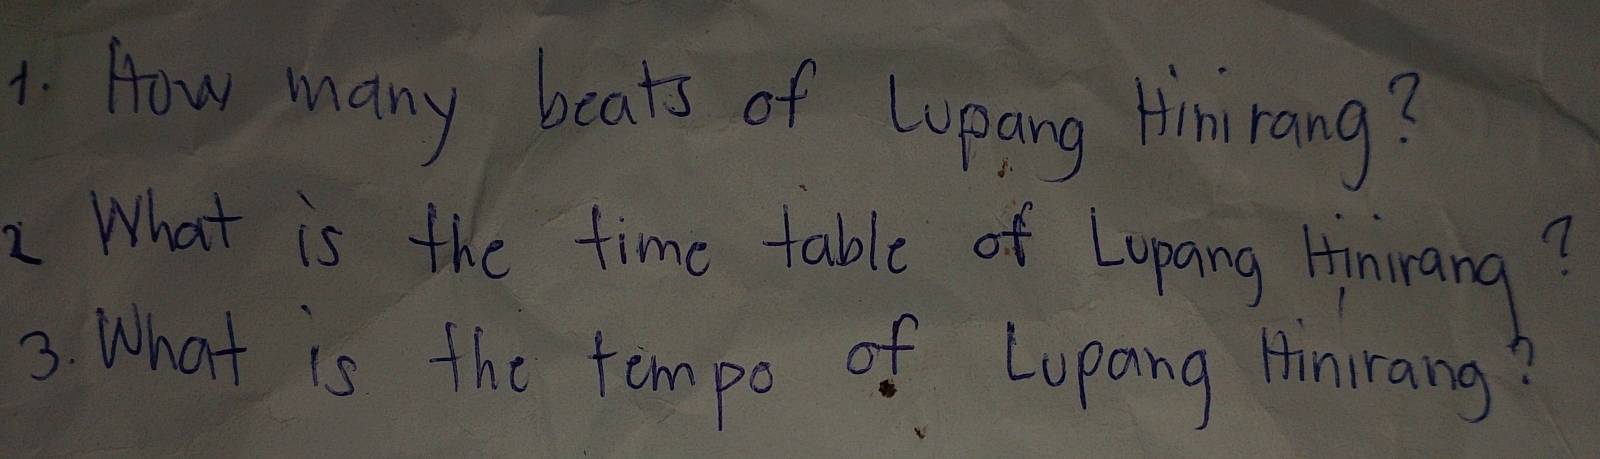 1. How many beats of Lupang Hinirang?
2 What is the time table of Lupang Hinirang?
3. What is the tempo of Lupang Hinirang?